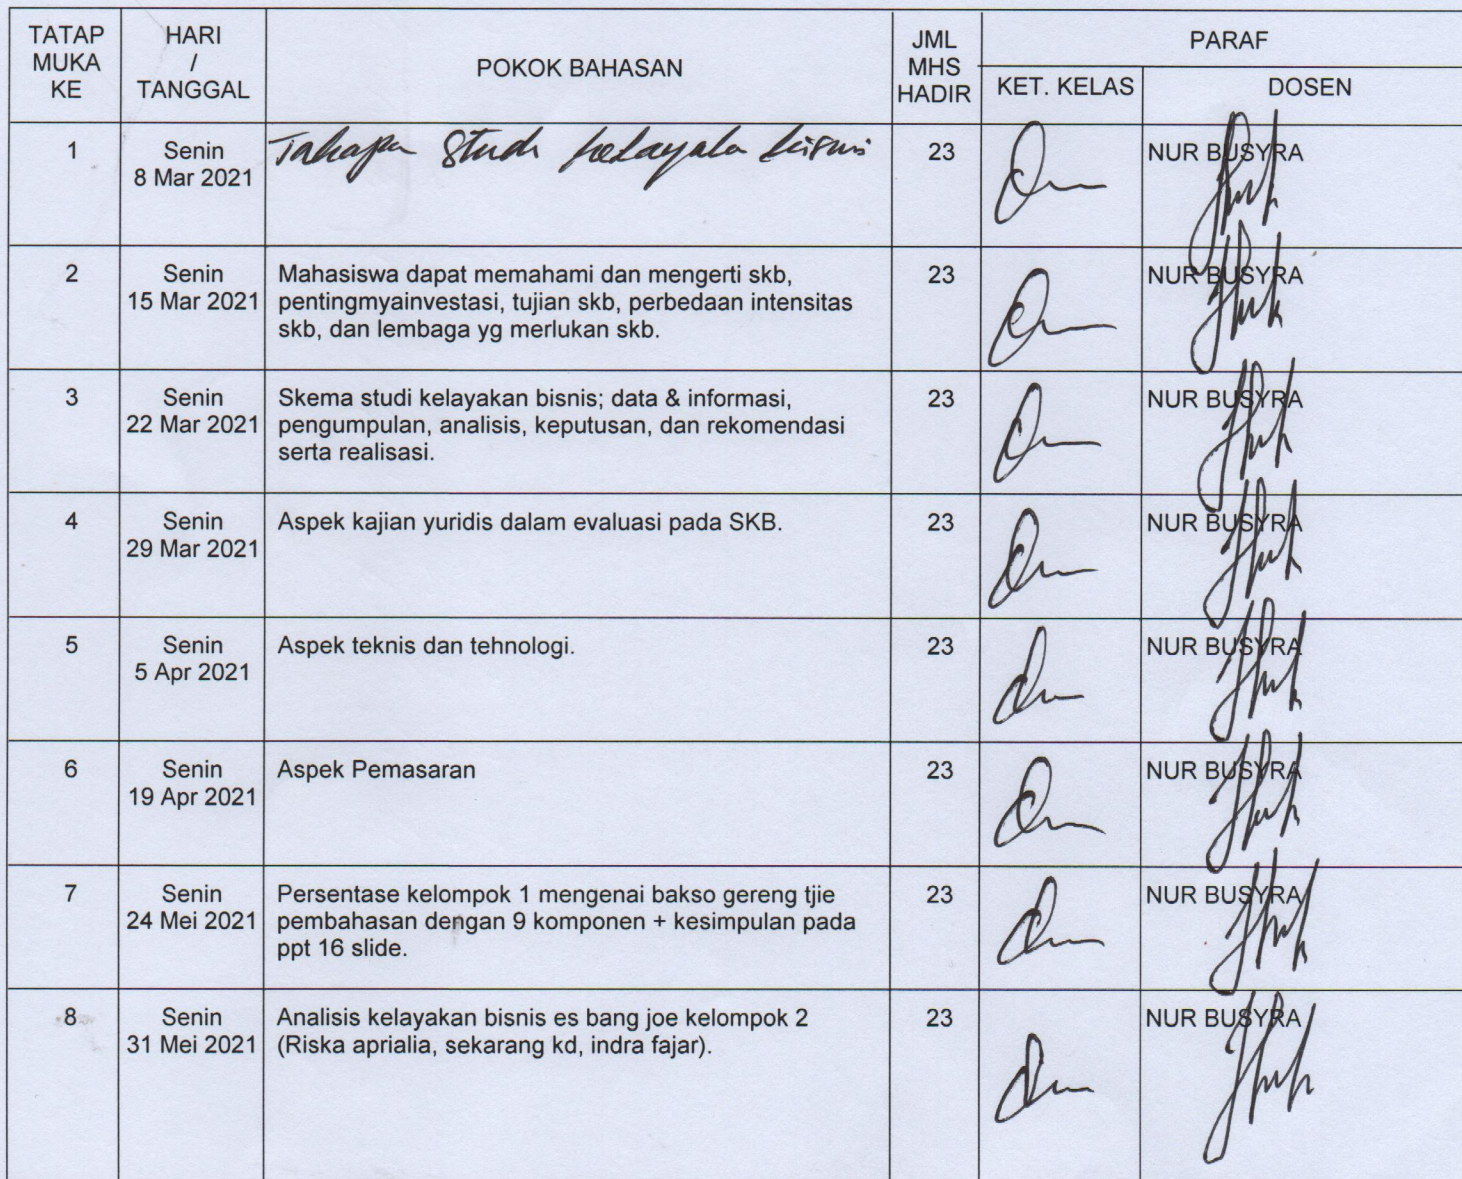 TATAP MUKA KE
HARI / TANGGAL
POKOK BAHASAN
JML MHS HADIR
PARAF
KET. KELAS
DOSEN
1
Senin
8 Mar 2021
Studi
23
NUR BUSYRA
2
Senin
15 Mar 2021
Mahasiswa dapat memahami dan mengerti skb,
pentingmyainvestasi, tujian skb, perbedaan intensitas
skb, dan lembaga yg merlukan skb.
23
NUR BUSYRA
3
Senin
22 Mar 2021
Skema studi kelayakan bisnis; data & informasi,
pengumpulan, analisis, keputusan, dan rekomendasi
serta realisasi.
23
NUR BUSYRA
4
Senin
29 Mar 2021
Aspek kajian yuridis dalam evaluasi pada SKB.
23
NUR BUSYRA
5
Senin
5 Apr 2021
Aspek teknis dan tehnologi.
23
NUR BUSYRA
6
Senin
19 Apr 2021
Aspek Pemasaran
23
NUR BUSYRA
7
Senin
24 Mei 2021
Persentase kelompok 1 mengenai bakso gereng tjie
pembahasan dengan 9 komponen + kesimpulan pada
ppt 16 slide.
23
NUR BUSYRA
8
Senin
31 Mei 2021
Analisis kelayakan bisnis es bang joe kelompok 2
(Riska aprialia, sekarang kd, indra fajar).
23
NUR BUSYRA